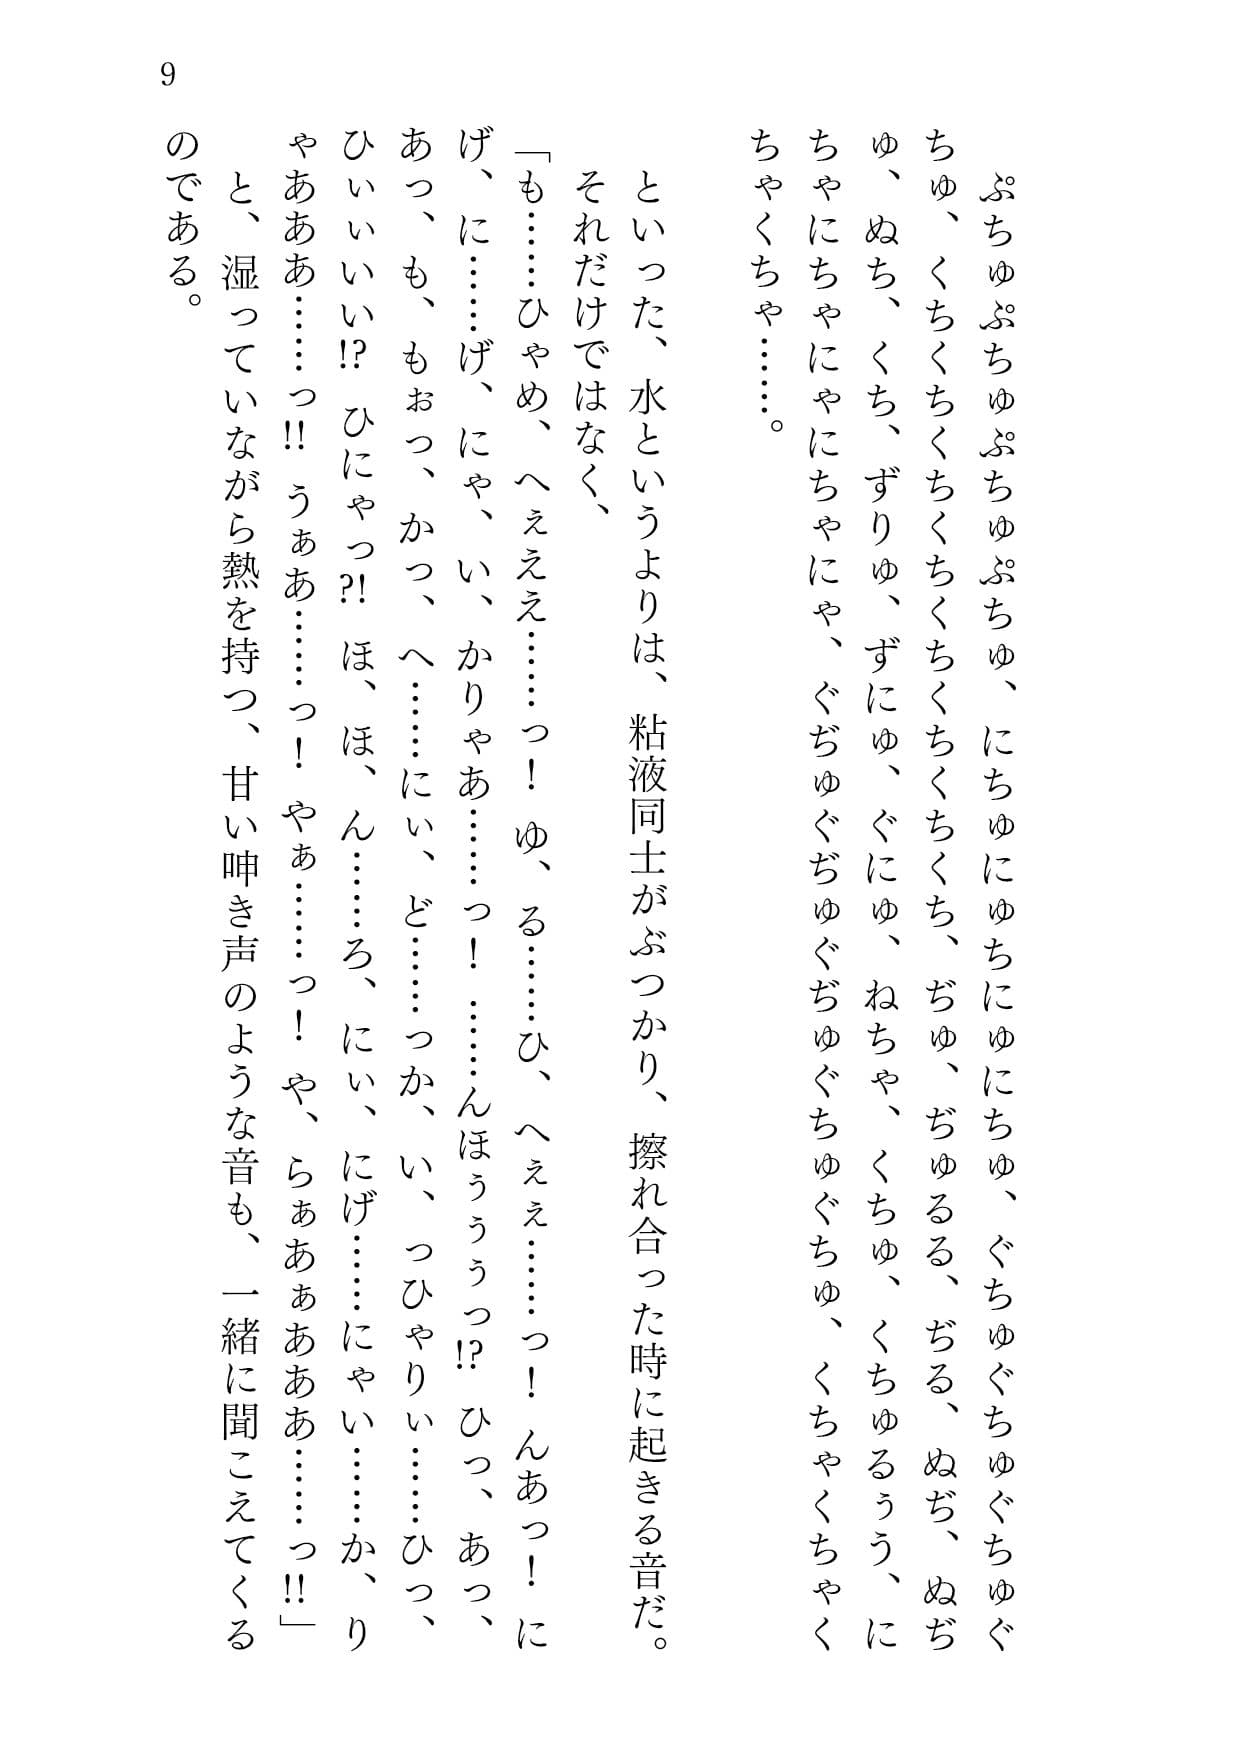 9
　ぷちゅぷちゅぷちゅぷちゅ、にちゅにゅちにゅにちゅ、ぐちゅぐちゅぐちゅぐ
ちゅ、くちくちくちくちくちくちくちくちくち、ぢゅ、ぢゅるる、ぢる、ぬぢ、ぬぢ
ゅ、ぬち、くち、ずりゅ、ずにゅ、ぐにゅ、ねちゃ、くちゅ、くちゅるぅう、に
ちゃにちゃにゃにちゃにゃ、ぐぢゅぐぢゅぐぢゅぐちゅぐちゅ、くちゃくちゃく
ちゃくちゃ……。
　といった、水というよりは、粘液同士がぶつかり、擦れ合った時に起きる音だ。
　それだけではなく、
「も……ひゃめ、へぇええ……っ！ ゆ、る……ひ、へぇぇ……っ！ んあっ！ に
げ、に……げ、にゃ、い、かりゃあ……っ！ ……んほぅぅぅっ!? ひっ、あっ、
あっ、も、もぉっ、かっ、へ……にぃ、ど……っか、い、っひゃりぃ……ひっ、
ひぃぃいい!? ひにゃっ?! ほ、ほ、ん……ろ、にぃ、にげ……にゃい……か、り
ゃあああ……っ!! うぁあ……っ！ やぁ……っ！ や、らぁあぁあああ……っ!!」
　と、湿っていながら熱を持つ、甘い呻き声のような音も、一緒に聞こえてくる
のである。